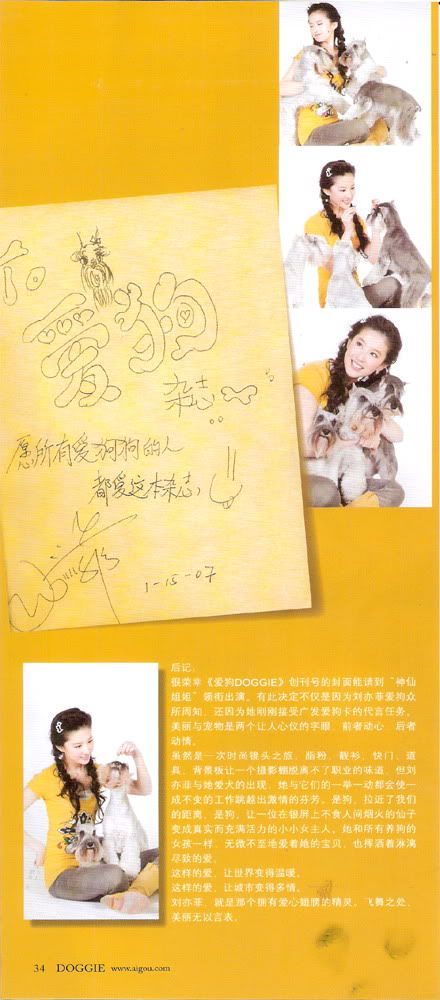 To
爱狗
杂志
愿所有爱狗狗的人
都爱这本杂志,
1-15-07
后记:
很荣幸《爱狗DOGGIE》创刊号的封面能请到“神仙
姐姐”领衔出演。有此决定不仅是因为刘亦菲爱狗众
所周知，还因为她刚刚接受广发爱狗卡的代言任务。
美丽与宠物是两个让人心仪的字眼，前者动心，后者
动情。
虽然是一次时尚镜头之旅，脂粉、靓衫、快门、道
具、背景板让一个摄影棚脱离不了职业的味道，但刘
亦菲与她爱犬的出现，她与它们的一举一动都会使一
成不变的工作跳越出激情的芬芳。是狗，拉近了我们
的距离，是狗，让一位在银屏上不食人间烟火的仙子
变成真实而充满活力的小小女主人。她和所有养狗的
女孩一样，无微不至地爱着她的宝贝，也挥洒着淋漓
尽致的爱。
这样的爱，让世界变得温暖。
这样的爱，让城市变得多情。
刘亦菲，就是那个拥有爱心翅膀的精灵。飞舞之处，
美丽无以言表。
34 DOGGIE www.aigou.com